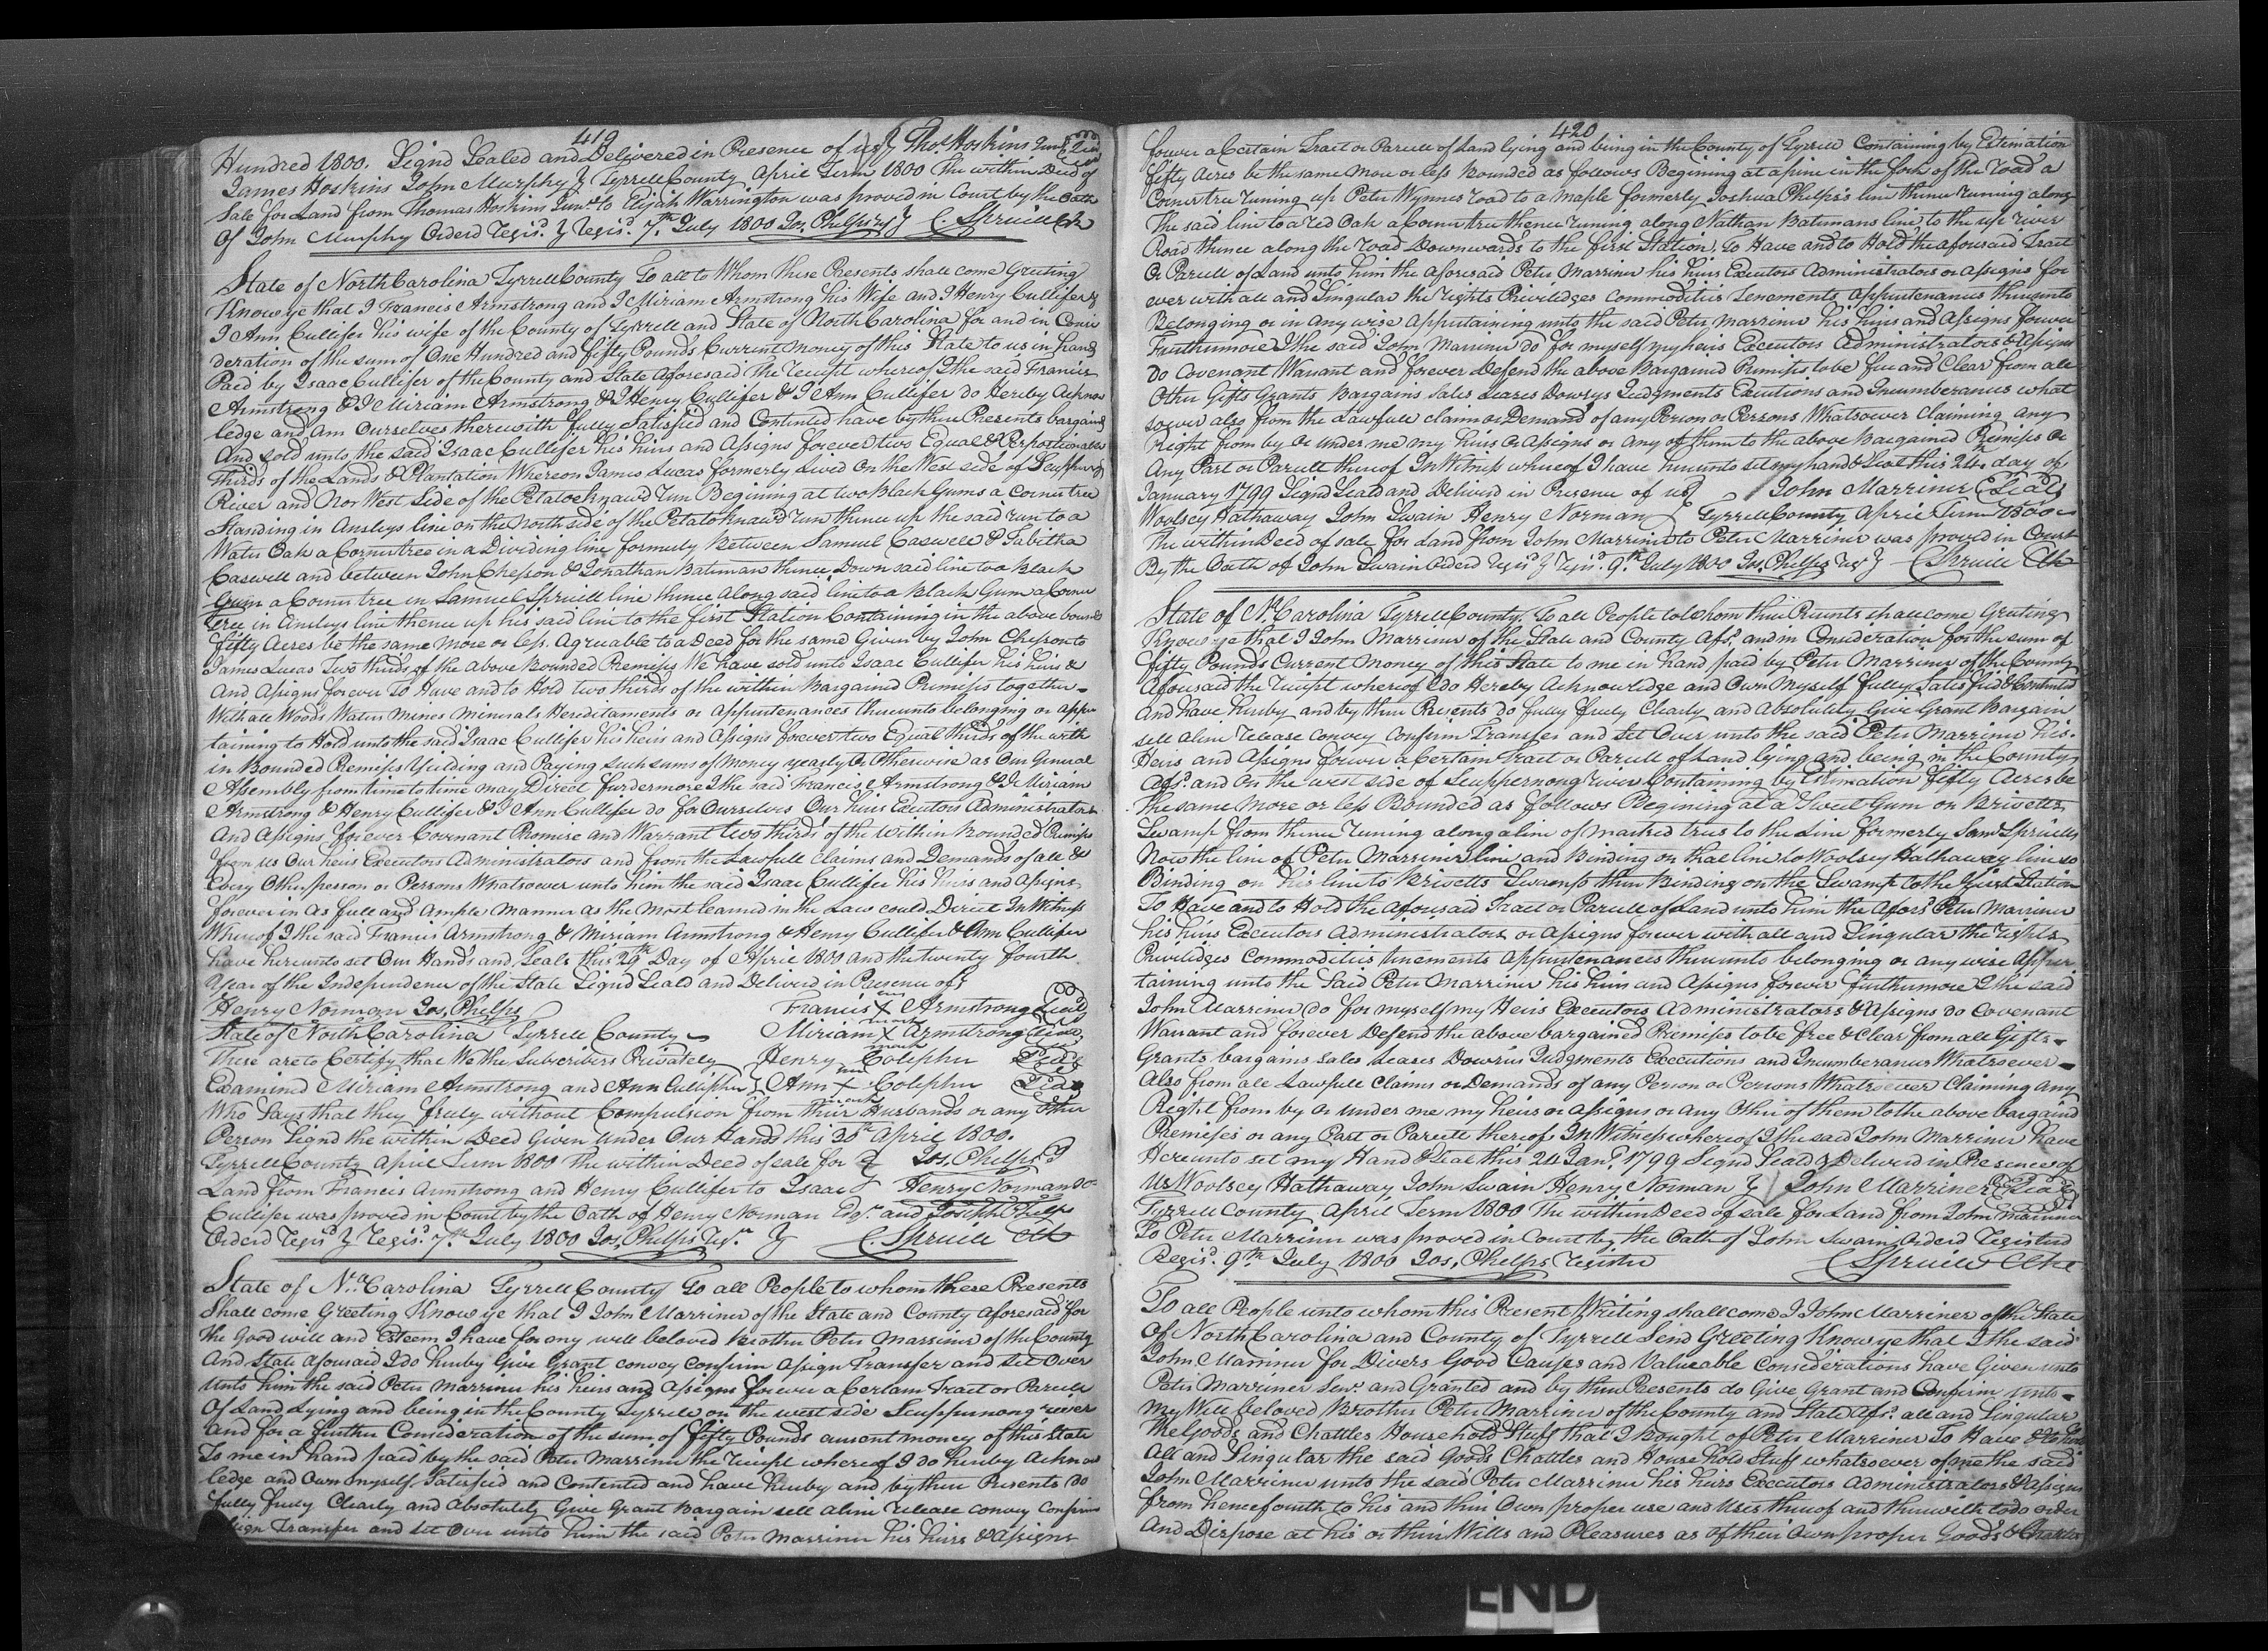 419
Hundred 1800. Signd Sealed and Delivered in Presence of us } Thos Hoskins Junr Seal
James Hoskins John Murphy } Tyrrell County April Term 1800 The within Deed of
Sale for Land from Thomas Hoskins Junr to Elijah Warrington was proved in Court by the Oath
Of John Murphy Orderd Regisd. } Regisd. 7th July 1800 Jos, Phelps Regr } C Spruill Clk
State of North Carolina Tyrrell County To all to Whom these Presents shall come Greeting
Know ye that I Francis Armstrong and I Miriam Armstrong his Wife and I Henry Cullifer &
I Ann Cullifer his wife of the County of Tyrrell and State of North Carolina for and in Consi
deration of the sum of One Hundred and fifty Pounds Current Money of this State to us in hand
Paid by Isaac Cullifer of the County and State Aforesaid The Receipt whereof I the said Francis
Armstrong & I Miriam Armstrong & I Henry Cullifer & I Ann Cullifer do Hereby Acknow
ledge and Am Ourselves therewith fully Satisfied and Contented have by these Presents bargaind
And sold unto the said Isaac Cullifer his heirs and Assigns forever two Equal & Proportionable
thirds of the Lands & Plantation Whereon James Lucas formerly Lived On the West side of Scuppernong
River and Nor West Side of the Petatoeknawd run Begining at two Black Gums a Corner tree
Standing in Ansleys line on the North side of the Petatoknawd run thence up the said run to a
Water Oak a Corner tree in a Dividing line formerly Between Samuel Caswell & Tabitha
Caswell and between John Chesson & Jonathan Bateman thence Down said line to a Black
Gum a Corner tree in Samuel Spruill line thence along said line to a Black Gum a Corner
tree in Ansleys line thence up his said line to the first Station Containing in the above bounds
fifty Acres be the same more or less. Agreable to a Deed for the same Given by John Chesson to
James Lucas Two thirds of the above Bounded Premises We have sold unto Isaac Cullifer his heirs &
And Assigns forever To Have and to Hold two thirds of the within Bargained Premises together
With all Woods Waters Mines Minerals Hereditaments or Appurtenances thereunto belonging or apper
taining to Hold unto the said Isaac Cullifer his heirs and Assigns forever two Equal thirds of the with
in Bounded Premises Yielding and Paying such sums of Money yearly or Otherwise as Our General
Assembly from time to time may Direct furdermore I the said Francis Armstrong & I Miriam
Armstrong & Henry Cullifer & I Ann Cullifer do for Ourselves Our heirs Executors Administrators
And Assigns forever Covenant Promise and Warrant two thirds of the within Bounded Premises
from us Our heirs Executors Administrators and from the Lawfull Claims and Demands of all &
Every Other person or Persons Whatsoever unto him the said Isaac Cullifer his heirs and Assigns
forever in As full and Ample Manner as the Most learned in the Law could Direct In Witness
Whereof I the said Francis Armstrong & Miriam Armstrong & Henry Cullifer & Ann Cullifer
have hereunto set Our Hands and Seals this 29th Day of April 1800 and the twenty fourth
Year of the Independence of the State Signd Seald and Deliverd in Presence of }
Henry Norman Jos, Phelps Francis X Armstrong Seal
State of North Carolina Tyrrell County Miriam X Armstrong Seal
These are to Certify that We the Subscribers Privately Henry Colepher Seal
Examined Miriam Armstrong and Ann Cullipher } Ann X Colepher Seal
Who Says that they freely without Compulsion from their Husbands or any Other
Person Signd the within Deed Given Under Our Hands this 30th April 1800.
Tyrrell County April Term 1800 The within Deed of sale for } Jos, Phelps
Land from Francis Armstrong and Henry Cullifer to Isaac } Henry Norman
Cullifer was proved in Court by the Oath of Henry Norman Esqr and Joseph Phelps
Orderd Regisd } Regisd. 7th July 1800 Jos, Phelps Regr } C. Spruill Clk
State of No. Carolina Tyrrell County To all People to whom these Presents
Shall come Greeting Know ye that I John Marriner of the State and County aforesaid for
the Good will and Esteem I have for my well beloved Brother Peter Marriner of the County
And State aforesaid I do hereby Give Grant convey Confirm Assign Transfer and Set Over
Unto him the said Peter Marriner his heirs and Assigns forever a Certain Tract or Parcell
Of Land Lying and being in the County Tyrrell on the west side Scuppernong river
And for a further Consideration of the sum of fifty Pounds current money of this State
To me in hand paid by the said Peter Marriner the Receipt whereof I do hereby Acknow
ledge and Own myself Satisfied and Contented and have hereby and by these Presents Do
fully freely Clearly and Absolutely Give Grant Bargain sell aline release convey Confirm
Transfer and Set Over unto him the said Peter Marriner his heirs & Assigns
420
forever a Certain Tract or Parcell of Land lying and being in the County of Tyrrell Containing by Estimation
fifty Acres be the same More or less Bounded as follows Begining at a pine in the fork of the road a
Corner tree runing up Peter Wynnes road to a Maple formerly Joshua Phelps's line thence runing along
The said line to a Red Oak a Corner tree thence runing along Nathan Batemans line to the up river
Road thence along the Road Downwards to the first Station, To Have and to Hold the aforesaid Tract
Or Parcell of Land unto him the Aforesaid Peter Marriner his heirs Executors Administrators or Assigns for
ever with all and Singular the rights Priviledges Commodities Tenements Appurtenances thereunto
Belonging or in Any wise Appertaining unto the said Peter Marriner his heirs and Assigns forever
Furthermore I the said John Marriner do for myself my heirs Executors Administrators & Assigns
Do Covenant Warrant and forever Defend the above Bargained Premises to be free and Clear from all
Other Gifts Grants Bargains Sales Leases Dowrys Judgments Executions and Incumberances what
soever also from the Lawfull claim or Demand of any Person or Persons Whatsoever Claiming Any
Right from by Or Under me my heirs Or Assigns or Any of them to the above Bargained Premises Or
Any Part or Parcell thereof In Witness whereof I have hereunto set my hand & Seal this 24 day of
January 1799 Signd Seald and Deliverd in Presence of us } John Marriner Seal
Woolsey Hathaway John Swain Henry Norman } Tyrrell County April Term 1800
The within Deed of sale for Land from John Marriner to Peter Marriner was proved in Court
By the Oath of John Swain Orderd Regisd } Regisd. 9th July 1800 Jos, Phelps Regr } C Spruill Clk
State of No Carolina Tyrrell County, To all People to whom these Presents shall come Greeting
Know ye that I John Marriner of the State and County Afsd. and in Consideration for the sum of
fifty Pounds Current Money of this State to me in hand paid by Peter Marriner of the County
Aforesaid the Receipt whereof I do Hereby Acknowledge and Own Myself fully Satisfied & Contented
And have hereby and by these Presents do fully freely Clearly and Absolutely Give Grant Bargain
sell aline release convey Confirm Transfer and Set Over unto the said Peter Marriner his
Heirs and Assigns forever a Certain Tract or Parcell of Land lying and being in the County
Afsd. and On the west side of Scuppernong river Containing by Estimation fifty Acres be
The same More or less Bounded as follows Begining at a Sweet Gum on Brivetts
Swamp from thence runing along a line of marked trees to the Line formerly Saml Spruills
Now the line of Peter Marriner line and Binding on that line to Woolsey Hathaway line so
Binding on his line to Brivetts Swamp then Binding on the Swamp to the first Station
To Have and to Hold the Aforesaid Tract or Parcell of Land unto him the Aforsd Peter Marriner
his heirs Executors Administrators or Assigns forever with all and Singular the rights
Priviledges Commodities Tenements Appurtenances thereunto belonging or any wise Apper
taining unto the Said Peter Marriner his heirs and Assigns forever furthermore I the said
John Marriner do for myself my Heirs Executors Administrators & Assigns do Covenant
Warrant and forever Defend the above bargained Premises to be free & Clear from all Gifts
Grants bargains Sales Leases Dowries Judgments Executions and Incumberances Whatsoever
Also from all Lawfull Claims or Demands of any Person or Persons Whatsoever Claiming any
Right from by Or under me my heirs or assigns or any Other of them to the above bargaind
Premises or any Part or Parcell thereof, In Witness whereof I the said John Marriner have
Hereunto set my Hand & Seal this 24 Jany. 1799 Signd Seald & Deliverd in Presence of
Us Woolsey Hathaway John Swain Henry Norman } John Marriner Seal
Tyrrell County April Term 1800 The within Deed of sale for Land from John Marriner
To Peter Marriner was proved in Court by the Oath of John Swain Orderd Registerd
Regisd. 9th July 1800 Jos, Phelps Register C Spruill Clk
To all People unto whom this Present Writing shall come I John Marriner of the State
Of North Carolina and County of Tyrrell Send Greeting Know ye that I the said
John Marriner for Divers Good Causes and Valueable Considerations have Given unto
Peter Marriner Senr. and Granted and by these Presents do Give Grant and Confirm unto
My Well beloved Brother Peter Marriner of the County and State Afsd. all and Singular
The Goods and Chattles Household Stuff that I Bought of Peter Marriner To Have & to hold
All and Singular the said Goods Chattles and House hold Stuff whatsoever of me the said
John Marriner unto the said Peter Marriner his heirs Executors Administrators & Assigns
from henceforth to his and their Own proper use and Uses thereof and therewith to do order
And Dispose at his or their Wills and Pleasures as of their Own proper Goods & Chattles
END